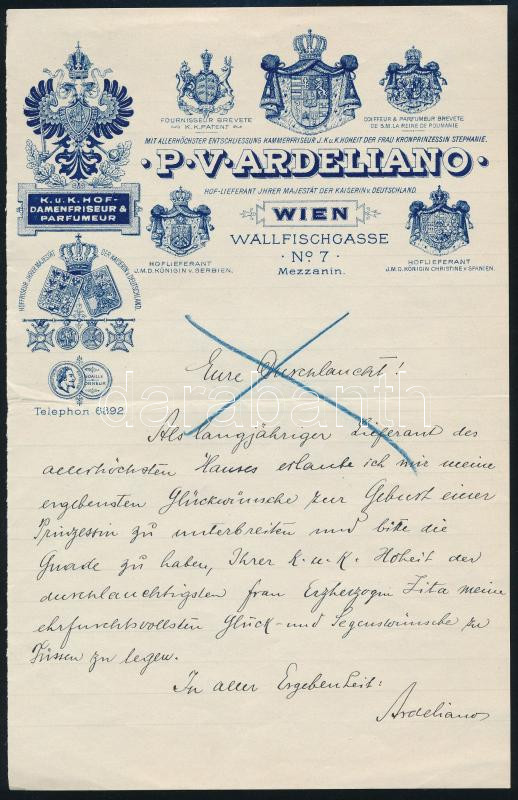 FOURNISSEUR BREVETE
K.K. PATENT
COIFFEUR & PARFUMEUR BREVETE
DE S.M. LA REINE DE ROUMANIE
MIT ALLERHÖCHSTER ENTSCHLIESSUNG KAMMERFRISEUR J.K.u.K.HOHEIT DER FRAU KRONPRINZESSIN STEPHANIE.
·P·V·ARDELIANO·
HOF-LIEFERANT JHRER MAJESTÄT DER KAISERIN v. DEUTSCHLAND.
K.u.K.HOF-
DAMENFRISEUR &
PARFUMEUR
WIEN
WALLFISCHGASSE
· No 7 ·
Mezzanin.
HOFLIEFERANT
J.M.D. KÖNIGIN v. SERBIEN.
HOFLIEFERANT
J.M.D. KÖNIGIN CHRISTINE v. SPANIEN.
HOFFRISEUR JHRER MAJESTÄT DER KAISERIN v. DEUTSCHLAND.
Telephon 6892
Eure Durchlaucht!
Als langjähriger Lieferant des
allerhöchsten Hauses erlaube ich mir meine
ergebensten Glückwünsche zur Geburt einer
Prinzessin zu unterbreiten und bitte die
Gnade zu haben, Ihrer K. u. K. Hoheit der
durchlauchtigsten frau Erzherzogin Zita meine
ehrfurchtsvollsten Glück- und Segenswünsche zu
Füssen zu legen.
In aller Ergebenheit:
Ardeliano
darabanth